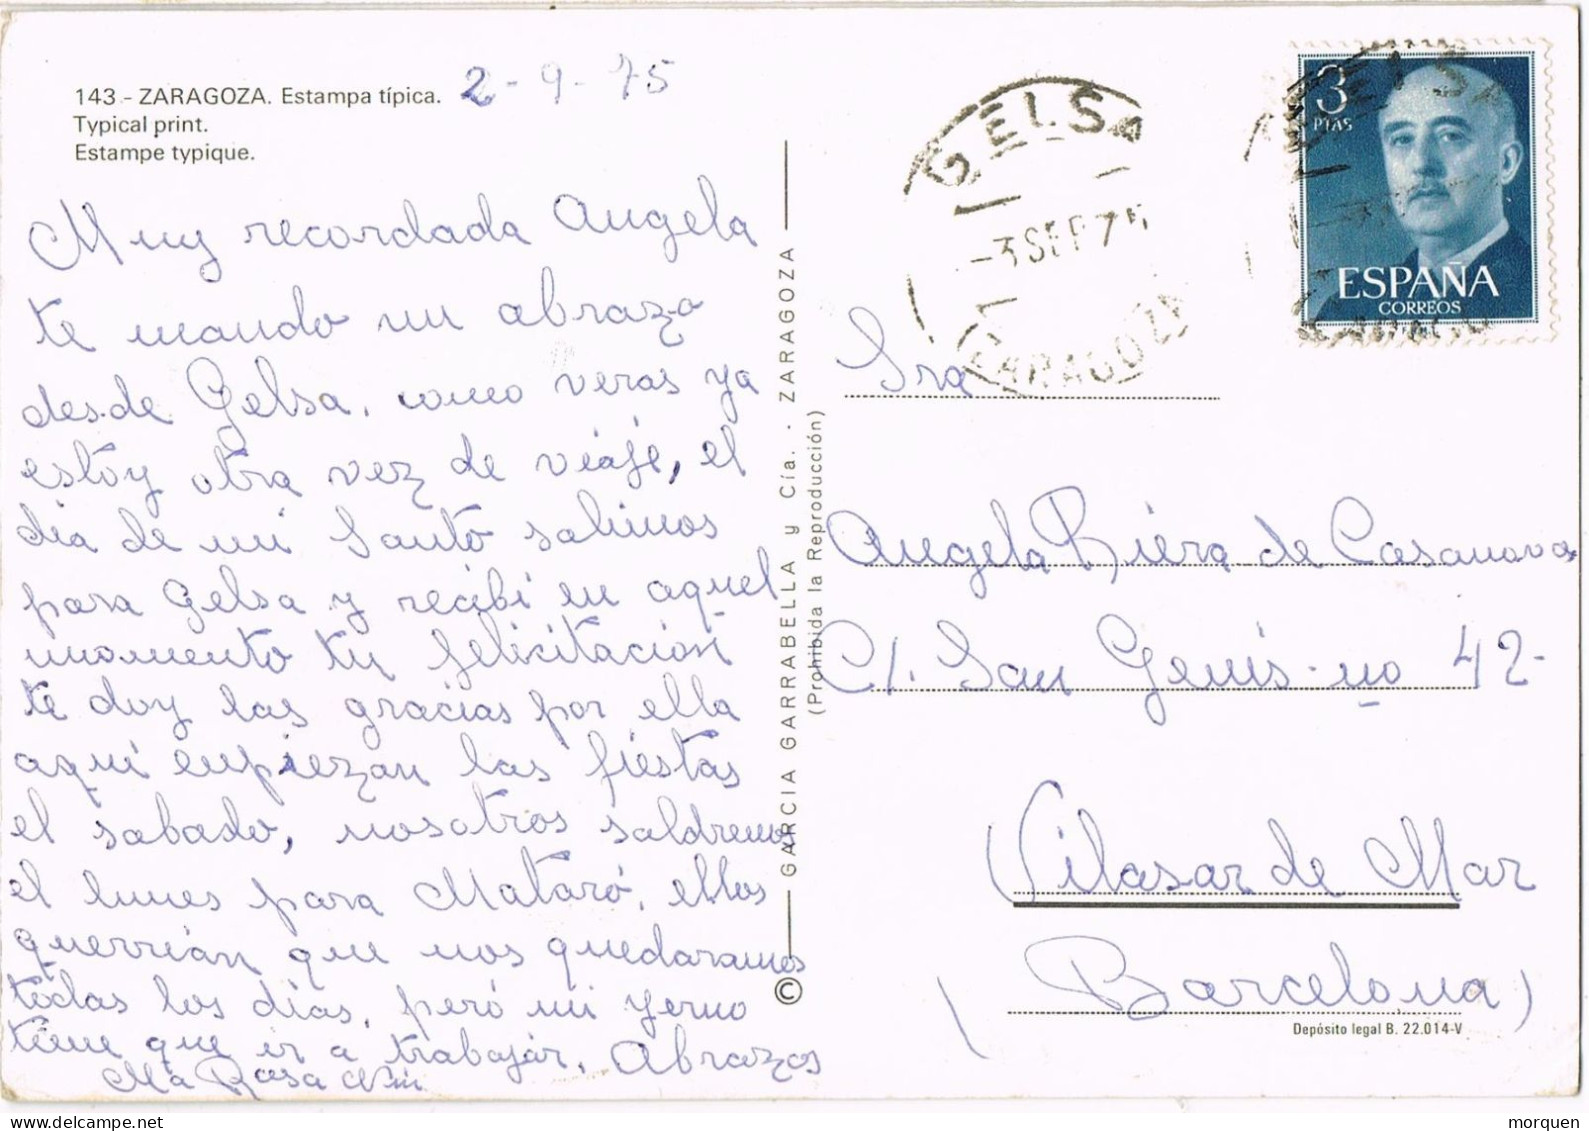 143 - ZARAGOZA. Estampa típica.
Typical print.
Estampe typique.
2 - 9 - 75
Muy recordada Angela
te mando un abrazo
desde Gelsa, como veras ya
estoy otra vez de viaje, el
dia de mi Santo salimos
para Gelsa y recibi en aquel
momento tu felicitación
te doy las gracias por ella
aqui empiezan las fiestas
el sabado, nosotros saldremos
el lunes para Mataró, ellos
querrian que nos quedaramos
todas los dias, peró mi yerno
tiene que ir a trabajar. Abrazos
Mª Rosa
GARCIA GARRABELLA y Cía. - ZARAGOZA
(Prohibida la Reproducción)
©
GELSA
-3 SEP 75
ZARAGOZA
3
PTAS
ESPAÑA
CORREOS
Sra
Angela Riera de Casanovas
C/. San Genis - no 42-
Vilasar de Mar
(Barcelona)
Depósito legal B. 22.014-V
morquen